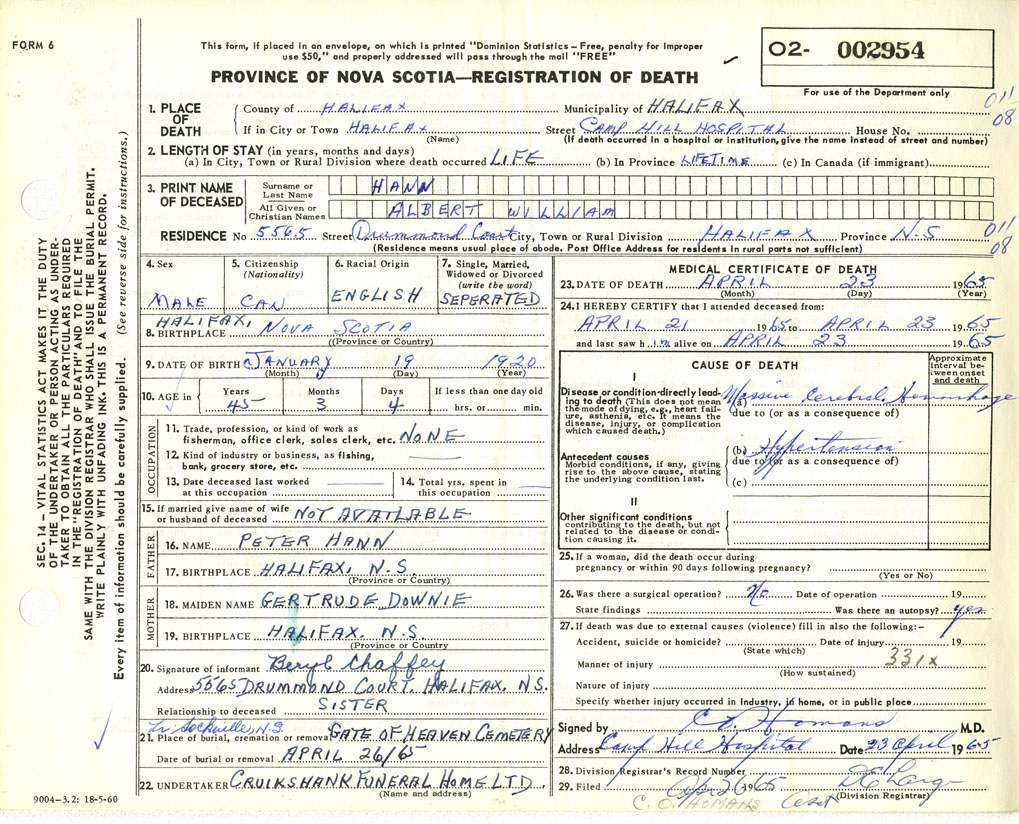 FORM 6
This form, if placed in an envelope, on which is printed "Dominion Statistics – Free, penalty for improper
use $50," and properly addressed will pass through the mail "FREE"
O2- 002954
PROVINCE OF NOVA SCOTIA—REGISTRATION OF DEATH
For use of the Department only
011
08
1. PLACE OF DEATH
County of HALIFAX Municipality of HALIFAX
If in City or Town HALIFAX Street CAMP HILL HOSPITAL House No.
(Name) (If death occurred in a hospital or institution, give the name instead of street and number)
2. LENGTH OF STAY (in years, months and days)
(a) In City, Town or Rural Division where death occurred LIFE (b) In Province LIFETIME (c) In Canada (if immigrant)
3. PRINT NAME OF DECEASED
Surname or Last Name HANN
All Given or Christian Names ALBERT WILLIAM
RESIDENCE No 5565 Street Drummond Court City, Town or Rural Division HALIFAX Province N.S
(Residence means usual place of abode. Post Office Address for residents in rural parts not sufficient)
011
08
4. Sex MALE
5. Citizenship (Nationality) CAN
6. Racial Origin ENGLISH
7. Single, Married, Widowed or Divorced (write the word) SEPERATED
8. BIRTHPLACE HALIFAX, NOVA SCOTIA
((Province or Country)
9. DATE OF BIRTH JANUARY 19 1920
(Month) (Day) (Year)
10. AGE in Years 45 Months 3 Days 4 If less than one day old hrs. or min.
OCCUPATION
11. Trade, profession, or kind of work as
fisherman, office clerk, sales clerk, etc. NONE
12. Kind of industry or business, as fishing,
bank, grocery store, etc.
13. Date deceased last worked at this occupation
14. Total yrs. spent in this occupation
15. If married give name of wife
or husband of deceased NOT AVAILABLE
FATHER
16. NAME PETER HANN
17. BIRTHPLACE HALIFAX, N.S.
(Province or Country)
MOTHER
18. MAIDEN NAME GERTRUDE DOWNIE
19. BIRTHPLACE HALIFAX. N.S.
(Province or Country)
20. Signature of informant Beryl Chaffey
Address 5565 DRUMMOND COURT. HALIFAX, NS.
Relationship to deceased SISTER
Lr Sackville, N.S.
21. Place of burial, cremation or removal GATE OF HEAVEN CEMETERY
Date of burial or removal APRIL 26/65
22. UNDERTAKER CRUIKSHANK FUNERAL HOME LTD.
(Name and address)
MEDICAL CERTIFICATE OF DEATH
23. DATE OF DEATH APRIL 23 1965
(Month) (Day) (Year)
24. I HEREBY CERTIFY that I attended deceased from:
APRIL 21 1965 to APRIL 23 1965
and last saw him alive on APRIL 23 1965
CAUSE OF DEATH
Approximate interval between onset and death
I
Disease or condition directly leading to death (This does not mean the mode of dying, e.g., heart failure, asthenia, etc. It means the disease, injury, or complication which caused death.)
(a) Massive Cerebral Hemorrhage
due to (or as a consequence of)
Antecedent causes
Morbid conditions, if any, giving rise to the above cause, stating the underlying condition last.
(b) Hypertension
due to (or as a consequence of)
(c)
II
Other significant conditions
contributing to the death, but not related to the disease or condition causing it.
25. If a woman, did the death occur during
pregnancy or within 90 days following pregnancy?
(Yes or No)
26. Was there a surgical operation? No Date of operation 19
State findings Was there an autopsy? yes
27. If death was due to external causes (violence) fill in also the following:-
Accident, suicide or homicide? Date of injury 19
(State which)
331X
Manner of injury
(How sustained)
Nature of injury
Specify whether injury occurred in industry, in home, or in public place
Signed by C O Homans M.D.
Address Camp Hill Hospital Date 23 April 1965
28. Division Registrar's Record Number
29. Filed 1965
(Division Registrar)
C. O. HOMANS
SEC. 14 – VITAL STATISTICS ACT MAKES IT THE DUTY
OF THE UNDERTAKER OR PERSON ACTING AS UNDERTAKER TO OBTAIN ALL THE PARTICULARS REQUIRED
IN THE "REGISTRATION OF DEATH" AND TO FILE THE
SAME WITH THE DIVISION REGISTRAR WHO SHALL ISSUE THE BURIAL PERMIT.
WRITE PLAINLY WITH UNFADING INK. THIS IS A PERMANENT RECORD.
Every item of information should be carefully supplied. (See reverse side for instructions.)
9004-3.2: 18-5-60